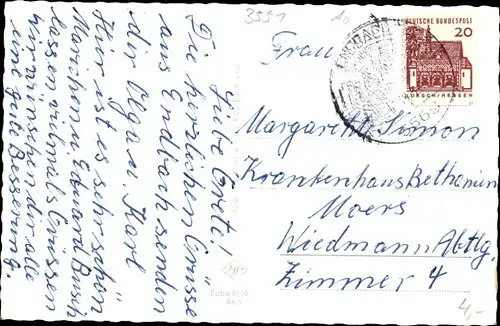 3551
10
Liebe Greti!
Die herzlichen Grüsse
aus Endbach senden
dir Olga u. Karl
Hier ist es sehr schön
Mariechen Eduard Busch
lassen vielmals Grüssen
wir wünschen dir alle
eine gute Besserung.
DEUTSCHE BUNDESPOST
20
LORSCH/HESSEN
ENDBACH
Frau
Margarethe Simon
Krankenhaus Bethanien
Moers
Wiedmann Abtlg.
Zimmer 4
Agfa
4,-